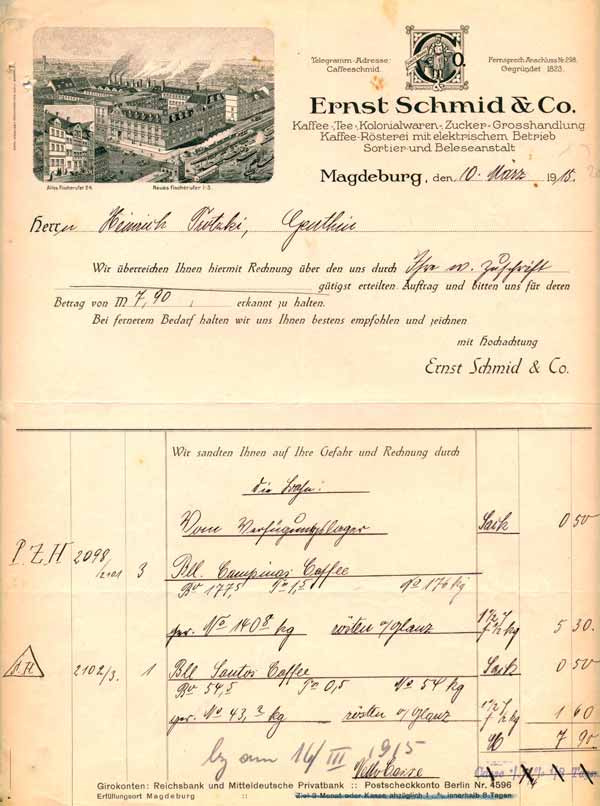 Telegramm-Adresse:
Caffeeschmid.
Co.
Fernsprech-Anschluss Nr 298.
Gegründet 1823.
Ernst Schmid & Co.
Kaffee-, Tee-, Kolonialwaren-, Zucker-Grosshandlung
Kaffee-Rösterei mit elektrischem Betrieb
Sortier- und Beleseanstalt
Altes Fischerufer 24.
Neues Fischerufer 1-3.
Magdeburg, den 10. März 1915.
Herrn Heinrich Trotzki, Genthin
Wir überreichen Ihnen hiermit Rechnung über den uns durch Ihre w. Zuschrift
gütigst erteilten Auftrag und bitten uns für deren
Betrag von M 7,90, erkannt zu halten.
Bei fernerem Bedarf halten wir uns Ihnen bestens empfohlen und zeichnen
mit Hochachtung
Ernst Schmid & Co.
Wir sandten Ihnen auf Ihre Gefahr und Rechnung durch
die Bahn:
Vom Verfügungslager Sack 0 50
P.Z.H 2098 3 Bll. Campinas Coffee
Bo 177,5 Ta 1,5 No 176 kg
ger. No 140,8 kg rösten o/Glanz 5 30
2102/3. 1 Bll Santos Coffee Sack 0 50
Bo 54,5 Ta 0,5 No 54 kg
ger. No 43,2 kg rösten o/Glanz 1 60
7 90
16/III 1915
Netto Casse
Girokonten: Reichsbank und Mitteldeutsche Privatbank :: Postscheckkonto Berlin Nr. 4596
Erfüllungsort Magdeburg :: Ziel 3 Monat oder Kasse abzüglich 1 % innerhalb 8 Tagen